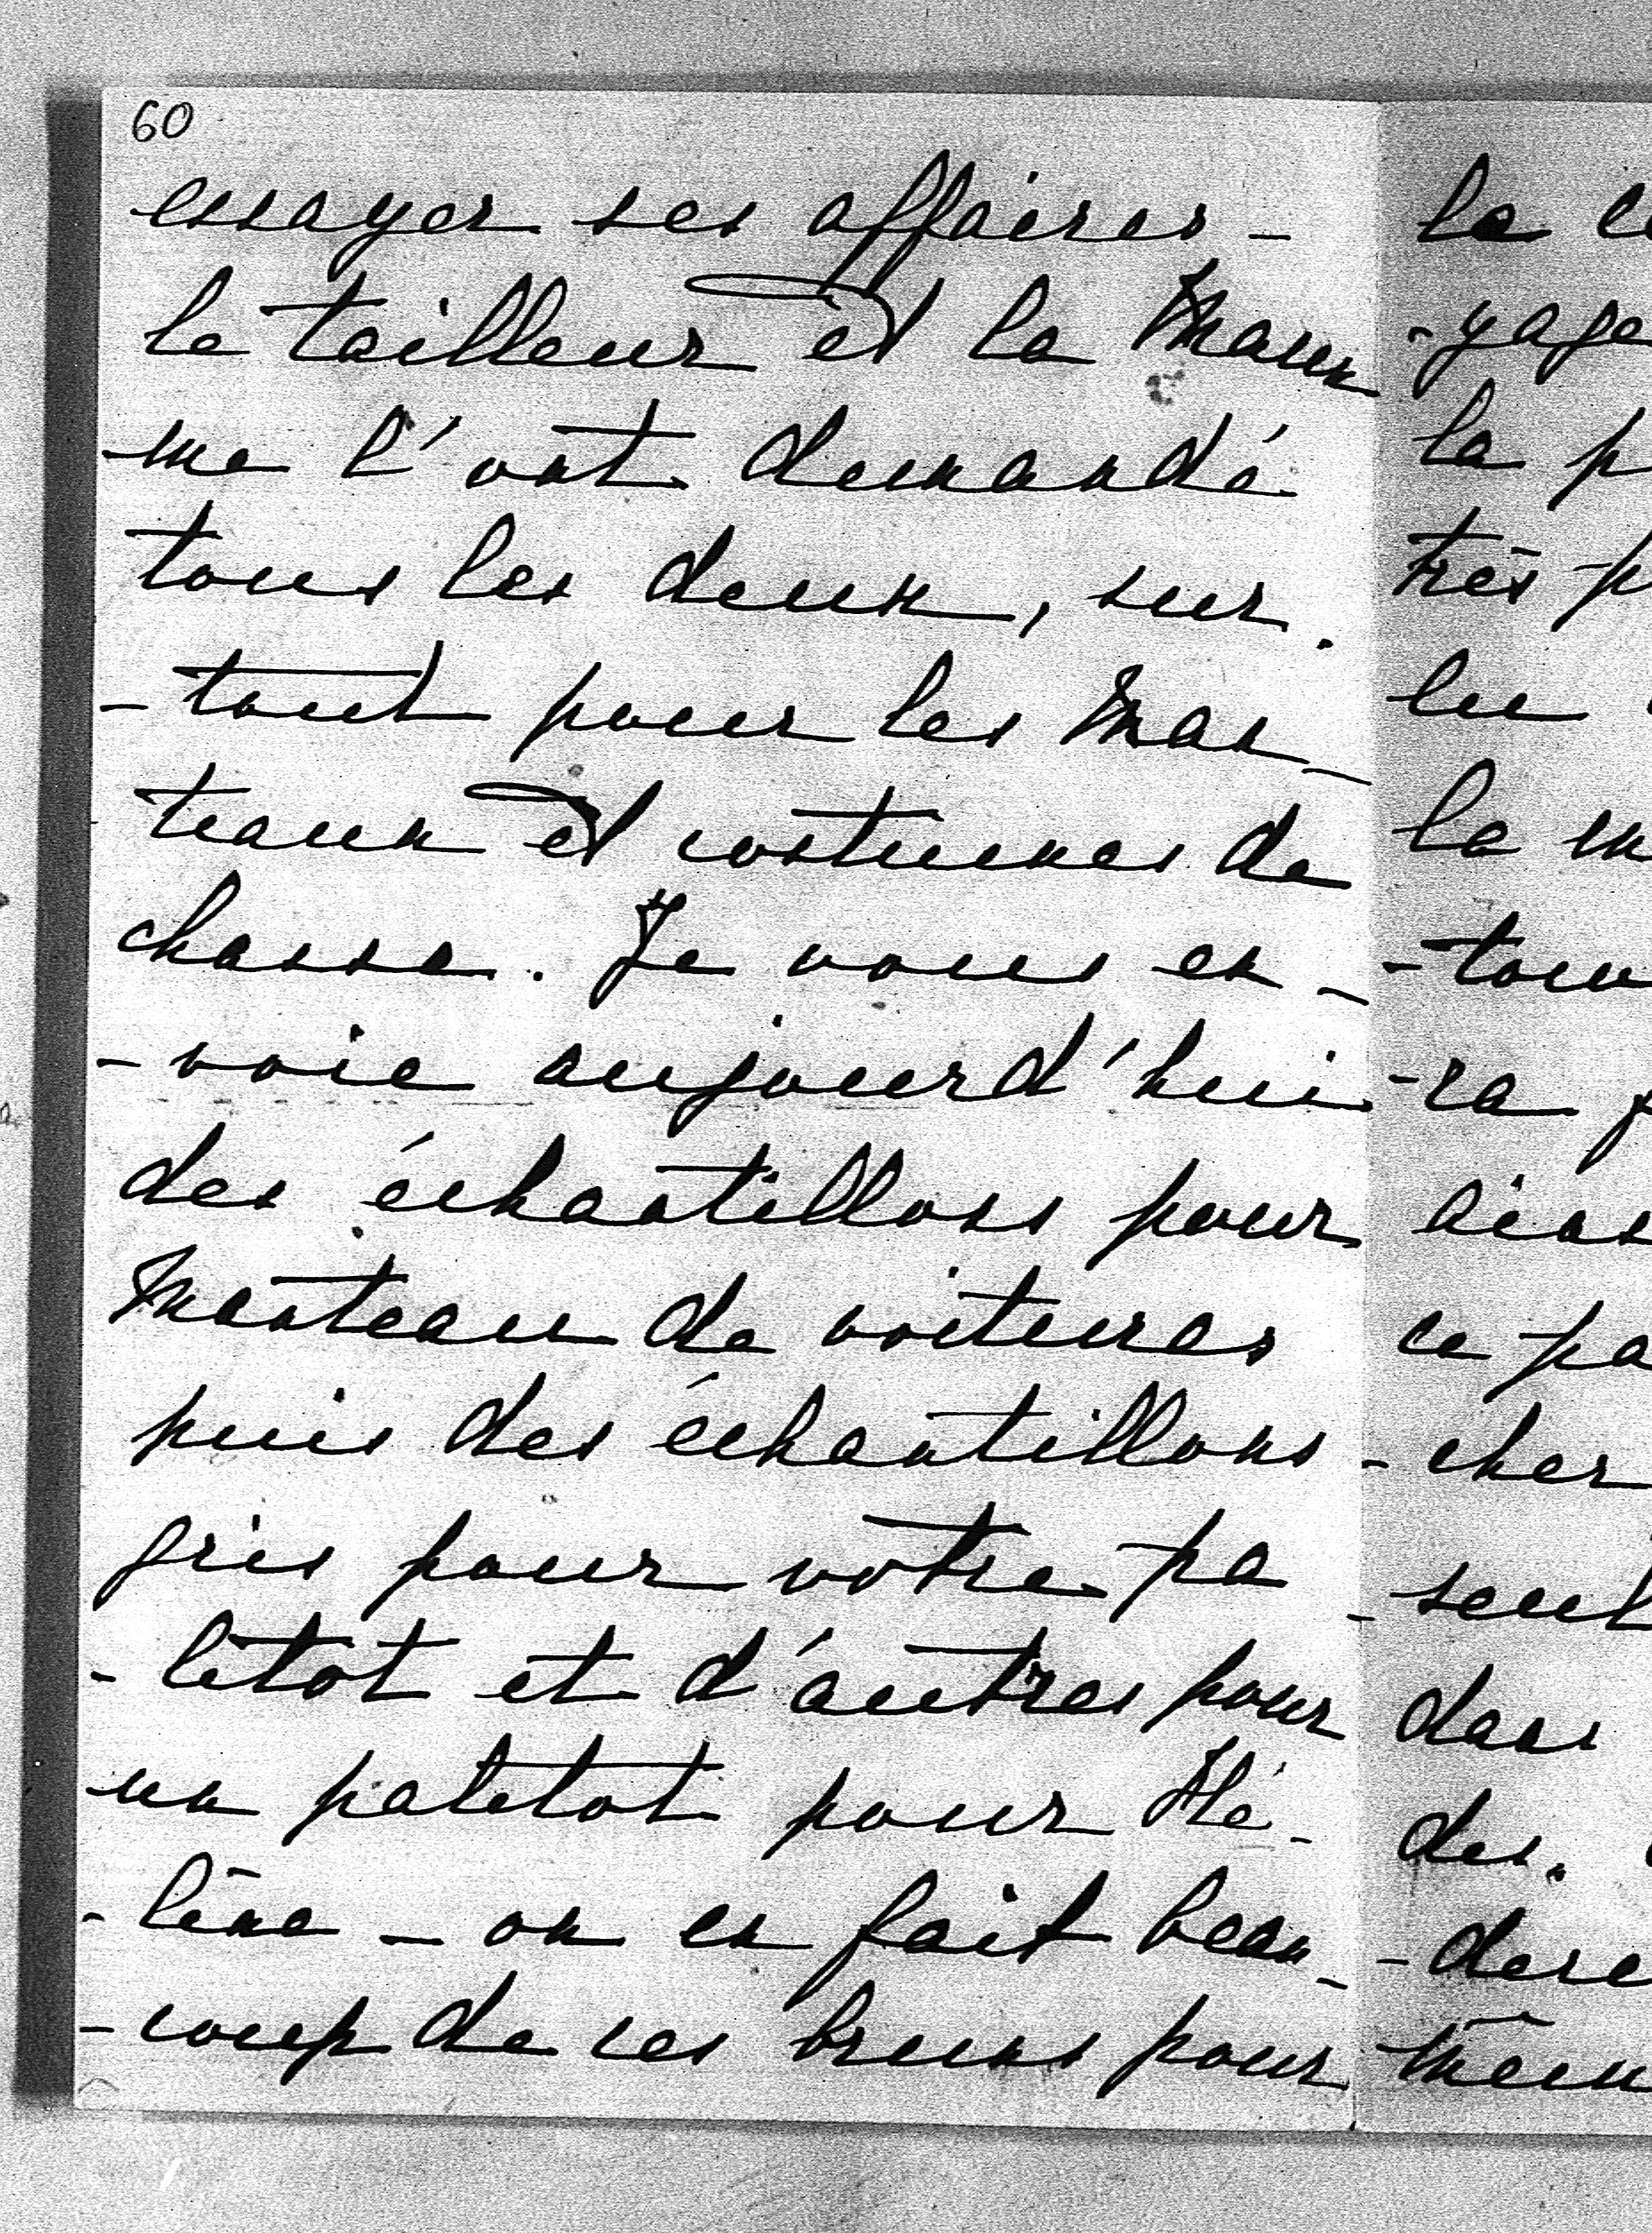 60
essayer ses affaires -
le tailleur et la Maur
me l'ont demandé
tous les deux, sur
- tout pour les Man -
teaux et costumes de
chasse. Je vous en -
- voie aujourd'hui
des échantillons pour
Manteau de voitures
puis des échantillons
gris pour votre pa
- letot et d'autres pour
un paletot pour Hé -
- lène - on en fait beau -
- coup de ces bruns pour
la
- yage
la p
très p
lu
la m
- tou
- ra
ains
ce pa
- cher
- seul
dans
des.
- dere
mêm